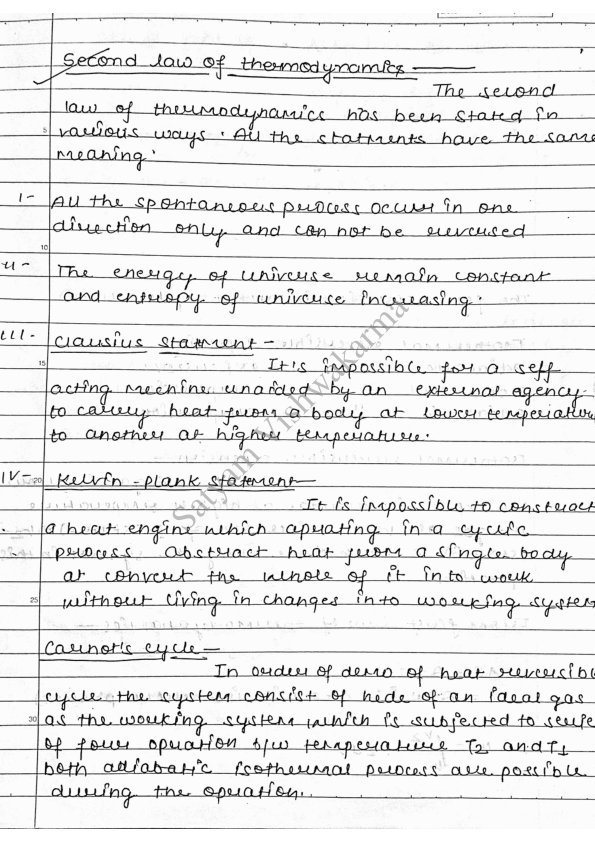 Second law of thermodynamics
The second
law of thermodynamics has been stated in
various ways. All the statments have the same
5
meaning.
I- All the spontaneous process occur in one
direction only and can not be reversed
10
II- The energy of universe remain constant
and entropy of universe increasing.
III- Clausius statment-
15
It's impossible for a self
acting mechine unaided by an external agency
to carry heat from a body at lower temperature
to another at higher temperature.
IV- 20 Kelvin-plank statement-
It is impossible to constract
a heat engine which aprating in a cyclic
process abstract heat from a single body
at convert the whole of it in to work
25 without living in changes in to working system
Carnot's cycle-
In order of demo of heat reversible
cycle the system consist of hede of an ideal gas
30 as the working system which is subjected to serie
of four opration b/w temperature T2 and T1
both adiabatic isothermal process are possible
during the operation.
Satyam Vishwakarma